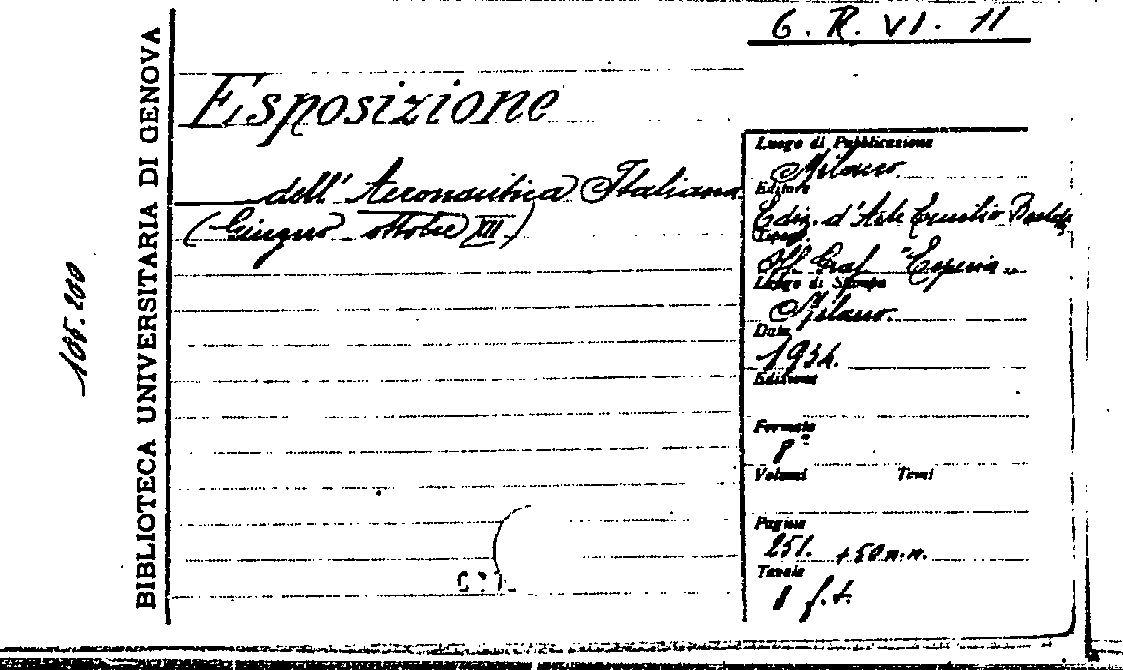 6. R. VI. 11
BIBLIOTECA UNIVERSITARIA DI GENOVA
105.200
Esposizione
dell' Aeronautica Italiana
(Giugno ottobre XII)
Luogo di Pubblicazione
Milano.
Editore
Ediz. d'Arte Emilio
Tipogr.
Off. Graf. "Esperia"
Luogo di Stampa
Milano.
Data
1934.
Edizione
Formato
8°
Volumi Tomi
Pagine
251. + 50 n.n.
Tavole
1 f.t.